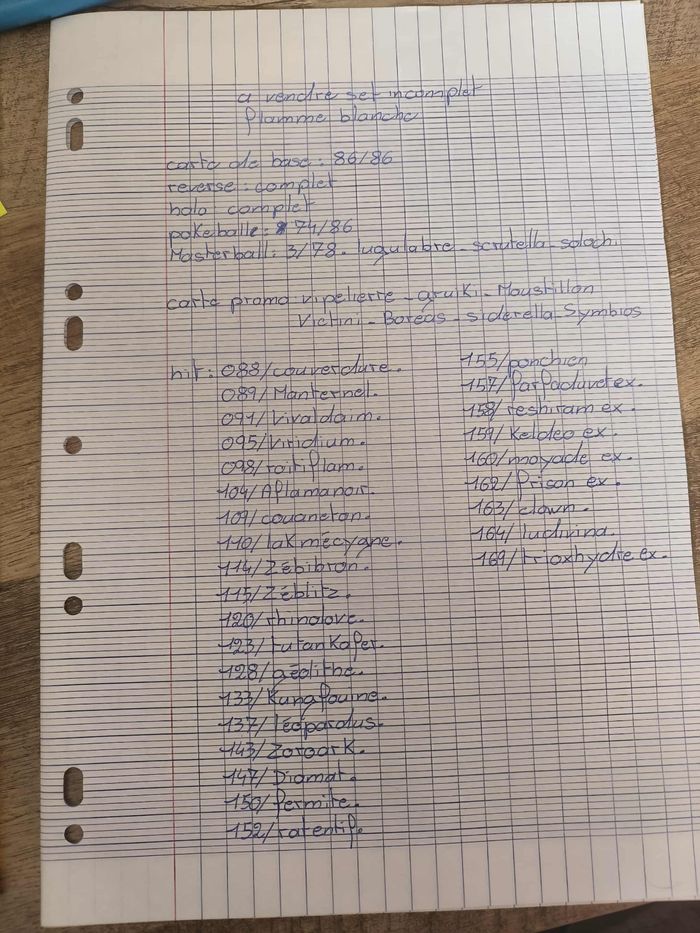 a vendre set incomplet
flamme blanche
carte de base : 86/86
reverse : complet
holo complet
pokeballe : 74/86
Masterball : 3/78. lugulabre - scrutella - soloch.
carte promo vipelierre - gruiki - Moustillon
Victini - Boréas - siderella - Symbios
hit : 088/couverdure.
089/Manternel.
091/Vivaldaim.
095/Viridium.
098/roitiflam.
104/Aflamanoir.
109/couaneton.
110/lakmécygne.
114/Zébibron.
115/Zéblitz.
120/rhinolove.
123/tutankafer.
128/géolithe.
133/Kungfouine.
137/léopardus.
143/Zoroark.
147/Diamat.
150/fermite.
152/ratentif.
155/ponchien
157/farfaduvet ex.
158/reshiram ex.
159/Keldeo ex.
160/moyade ex.
162/frison ex.
163/clown.
164/ludivina.
169/trioxhydre ex.